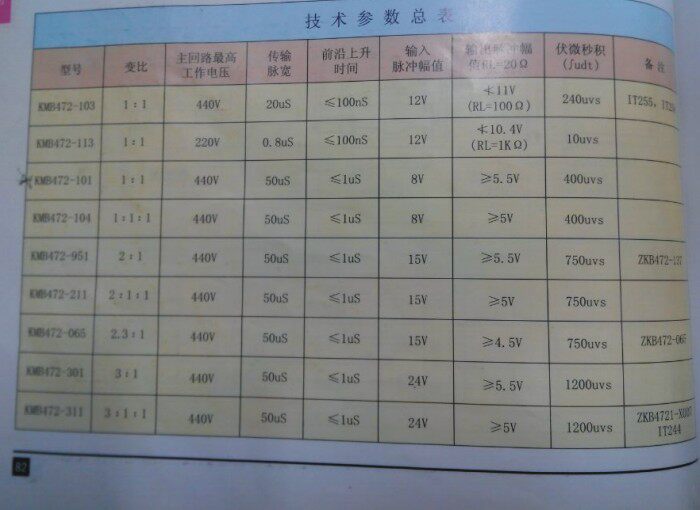 技术参数总表
型号 变比 主回路最高工作电压 传输脉宽 前沿上升时间 输入脉冲幅值 输出脉冲幅值RL=20Ω 伏微秒积(∫udt) 备注
KMB472-103 1:1 440V 20uS ≤100nS 12V ≮11V (RL=100Ω) 240uvs IT255,
KMB472-113 1:1 220V 0.8uS ≤100nS 12V ≮10.4V (RL=1KΩ) 10uvs
KMB472-101 1:1 440V 50uS ≤1uS 8V ≥5.5V 400uvs
KMB472-104 1:1:1 440V 50uS ≤1uS 8V ≥5V 400uvs
KMB472-951 2:1 440V 50uS ≤1uS 15V ≥5.5V 750uvs ZKB472-137
KMB472-211 2:1:1 440V 50uS ≤1uS 15V ≥5V 750uvs
KMB472-065 2.3:1 440V 50uS ≤1uS 15V ≥4.5V 750uvs ZKB472-065
KMB472-301 3:1 440V 50uS ≤1uS 24V ≥5.5V 1200uvs
KMB472-311 3:1:1 440V 50uS ≤1uS 24V ≥5V 1200uvs IT244
82